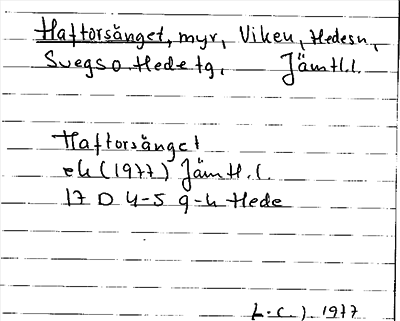 Haftorsänget, myr, Viken, Hedesn,
Svegs o. Hede tg, Jämtl.l.
Haftorsänget
ek (1977) Jämtl.l.
17 D 4-5 g-h Hede
L.C.J. 1977